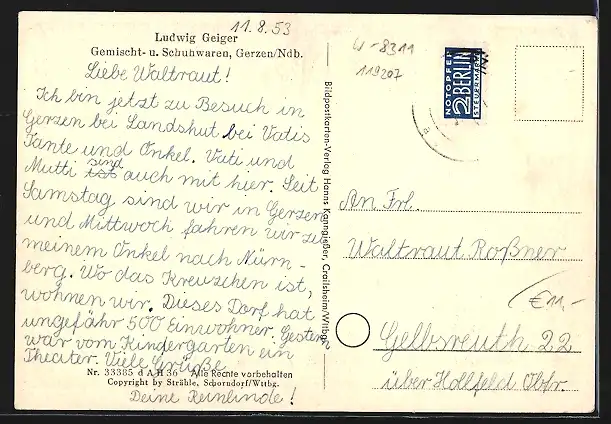 11.8.53
Ludwig Geiger
Gemischt- u. Schuhwaren, Gerzen/Ndb.
Liebe Waltraut!
Ich bin jetzt zu Besuch in
Gerzen bei Landshut bei Vatis
Tante und Onkel. Vati und
Mutti ist sind auch mit hier. Seit
Samstag sind wir in Gerzen
und Mittwoch fahren wir zu
meinem Onkel nach Nürn-
berg. Wo das Kreuzchen ist,
wohnen wir. Dieses Dorf hat
ungefähr 500 Einwohner. Gestern
war vom Kindergarten ein
Theater. Viele Grüße
Nr. 33385 d A H 36 Alle Rechte vorbehalten
Copyright by Strähle, Schorndorf/Wttbg.
Deine Reinlinde!
Bildpostkarten-Verlag Hanns Kanngießer, Crailsheim/Wttbg.
W-8311
119207
NOTOPFER
2 BERLIN
STEUERMARKE
An Frl.
Waltraut Roßner
€ 11,-
Gelbsreuth 22
über Hollfeld Obfr.